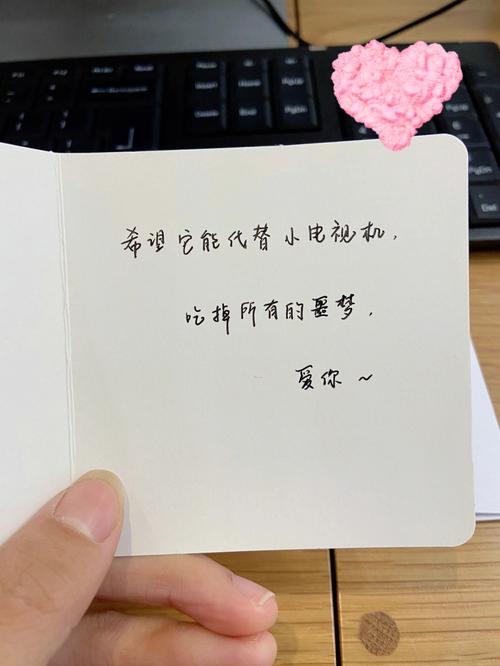 希望它能代替小电视机,
吃掉所有的噩梦,
爱你~